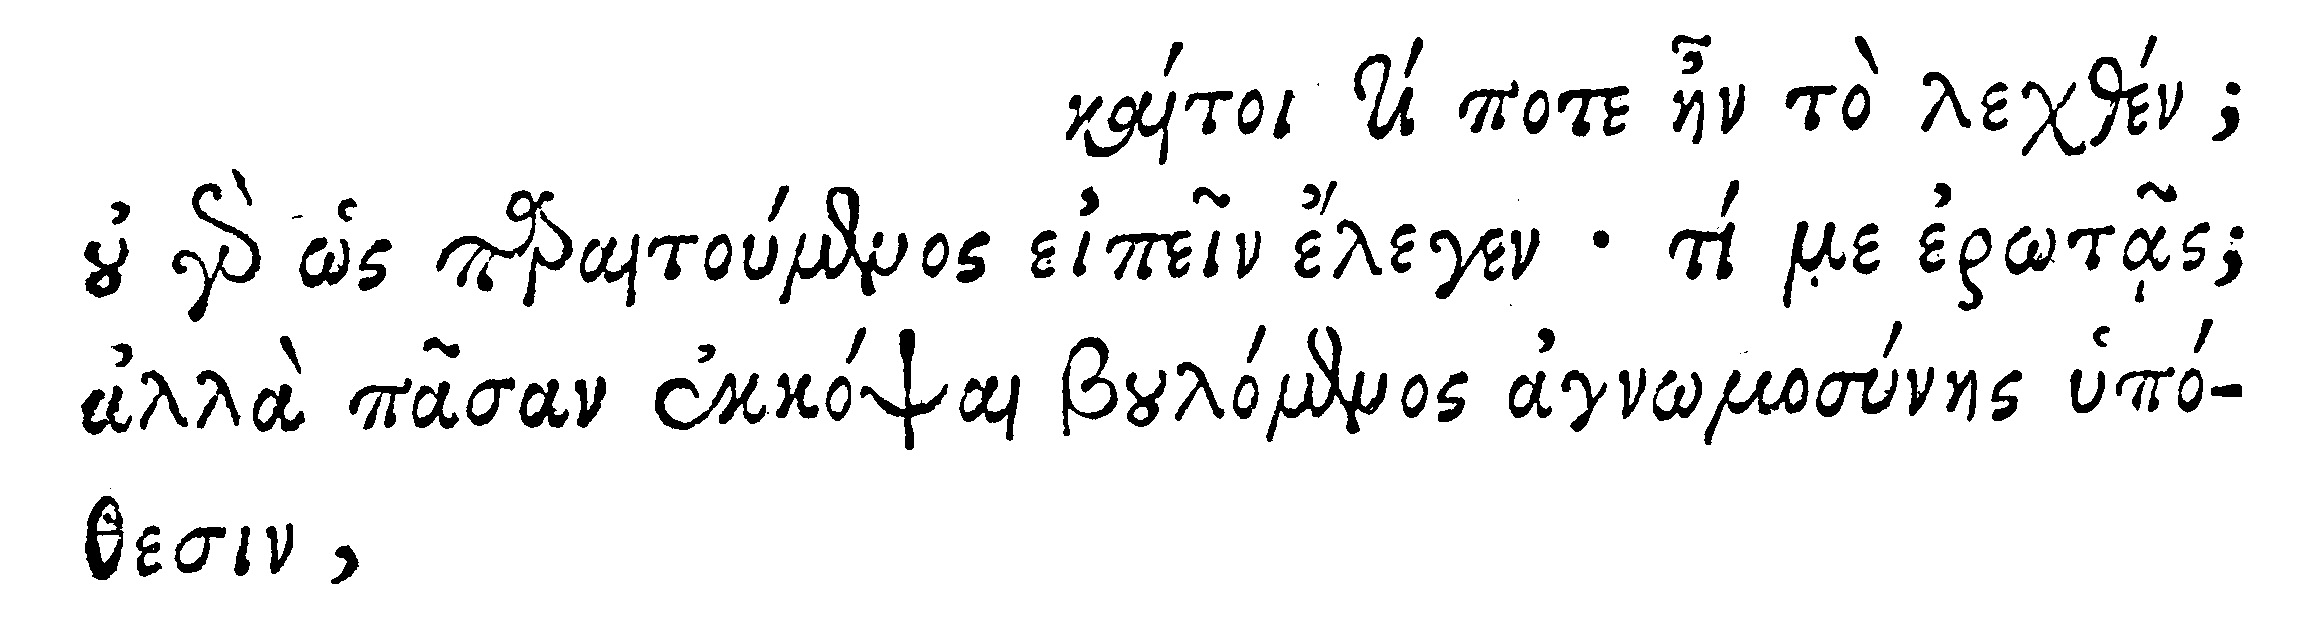 καίτοι τί ποτε ἦν τὸ λεχθέν;
οὐ γὰρ ὡς παραιτούμενος εἰπεῖν ἔλεγεν · τί με ἐρωτᾷς;
ἀλλὰ πᾶσαν ἐκκόψαι βουλόμενος ἀγνωμοσύνης ὑπό-
θεσιν,